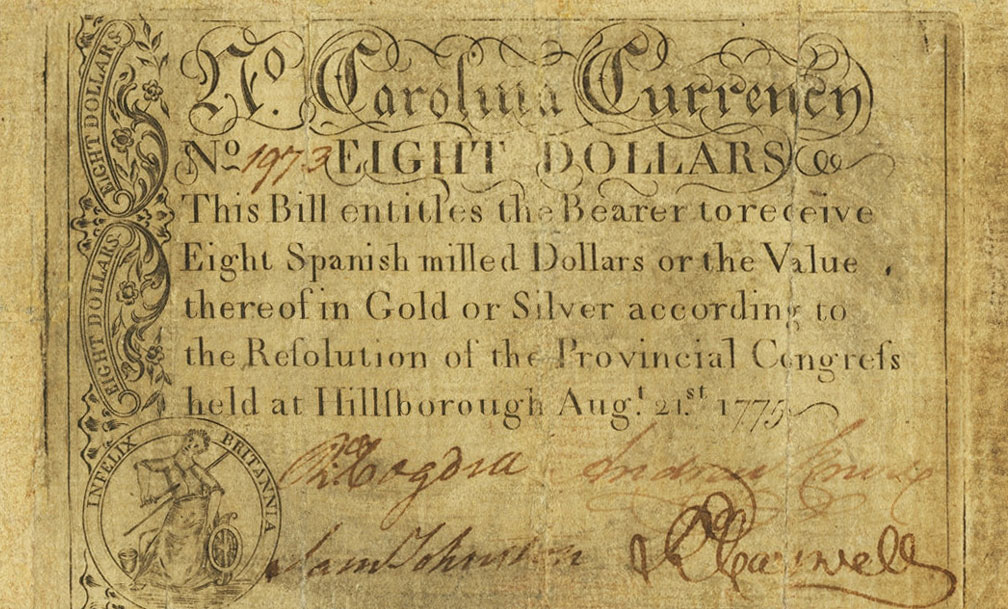 EIGHT DOLLARS
EIGHT DOLLARS
No. Carolina Currency
No 1973 EIGHT DOLLARS
This Bill entitles the Bearer to receive
Eight Spanish milled Dollars or the Value
thereof in Gold or Silver according to
the Reſolution of the Provincial Congreſs
held at Hillſborough Augt. 21.st 1775
INFELIX BRITANNIA
Rd Cogdell Andrew Knox
Sam Johnston Rd Caswell